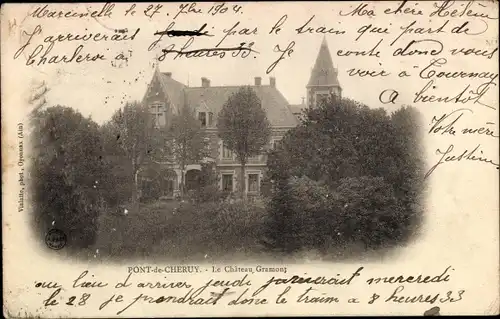 Marcinelle le 27. 7bre 1904.
Ma chère Hélène
J'arriverais jeudi par le train qui part de
Charleroi à 8 heures 33. Je conte donc vous
voir à Tournay
A
bientôt
Votre mère
Justine
Vialatte, phot., Oyonnax (Ain)
PONT-de-CHERUY. - Le Château Gramont
au lieu d'arriver jeudi j'amurait mercredi
le 28 je prendrait donc le train à 8 heures 33